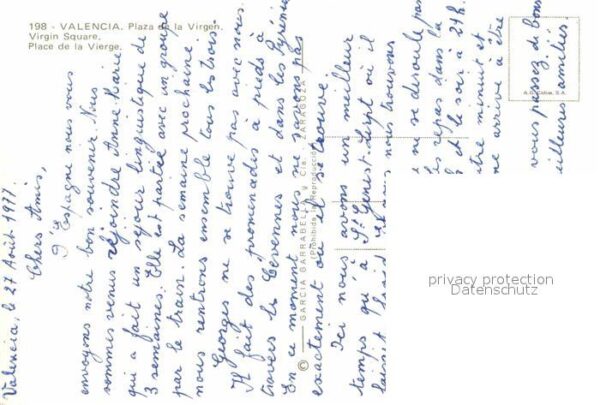 198 - VALENCIA. Plaza de la Virgen.
Virgin Square.
Place de la Vierge.
Valencia, le 27 Août 1977
Chers Amis,
D'Espagne nous vous
envoyons notre bon souvenir. Nous
sommes venus rejoindre Anne-Marie
qui a fait un séjour linguistique de
3 semaines. Elle est partie avec un groupe
par le train. La semaine prochaine
nous rentrons ensemble tous les trois.
Georges ne se trouve pas avec nous.
Il fait des promenades à pieds à
travers les Cévennes et dans les Pyrénées
En ce moment nous ne savons pas
exactement où il se trouve
Ici nous avons un meilleur
temps qu'à St Genest-Lerpt où il
faisait froid et
nous trouvons
ne se déroule pas
les repas dans la
et le soir à 21h.
minuit et
ne arrive à être
vous passez de bons
meilleures amitiés.
© GARCIA GARRABELLA y Cia. - ZARAGOZA
(Prohibida la Reproducción)
privacy protection
Datenschutz